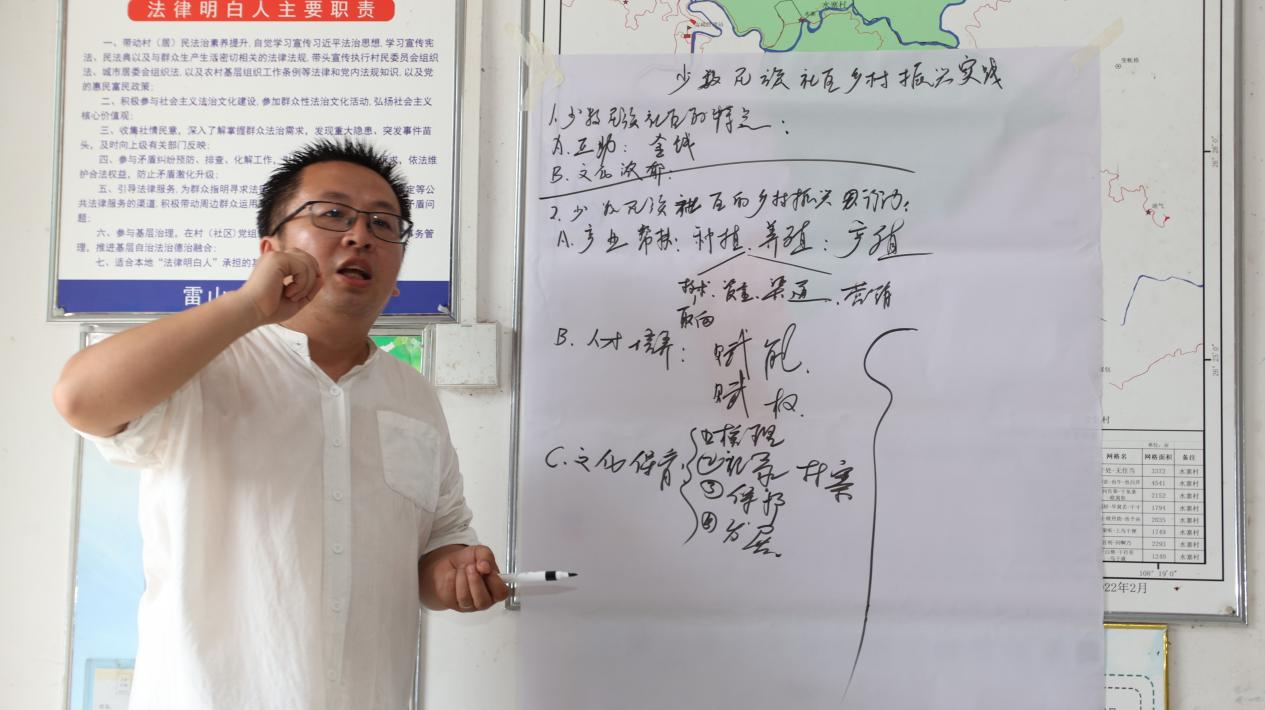 法律明白人主要职责
一、带动村（居）民法治素养提升,自觉学习宣传习近平法治思想,学习宣传宪
法、民法典以及与群众生产生活密切相关的法律法规,带头宣传执行村民委员会组织
法、城市居委会组织法,以及农村基层组织工作条例等法律和党内法规知识,以及党
的惠民富民政策;
二、积极参与社会主义法治文化建设,参加群众性法治文化活动,弘扬社会主义
核心价值观;
三、收集社情民意，深入了解掌握群众法治需求，发现重大隐患、突发事件苗
头，及时向上级有关部门反映;
四、参与矛盾纠纷预防、排查、化解工作，
求，依法维
护合法权益，防止矛盾激化升级;
五、引导法律服务,为群众指明寻求法
定等公
共法律服务的渠道,积极带动周边群众运用
矛盾问
题;
六、参与基层治理，在村（社区）党组
事务管
理，推进基层自治法治德治融合;
七、适合本地“法律明白人”承担的其
雷山
少数民族社区乡村振兴实践
1.少数民族社区的特点：
A.互助：
B.文化浓郁：
2.少数民族社区的乡村振兴
A.产业帮扶：种植、养殖：
技术、资金、渠道、营销
取向
B.人才培养：赋能、
赋权
C.文化保育
①梳理
②记录 村寨
③保护
④发展
水寨村
单位：亩
网格名 网格面积 备注
3372 水寨村
4541 水寨村
2152 水寨村
1794 水寨村
2035 水寨村
1749 水寨村
2293 水寨村
1249 水寨村
108°19′0″
22年2月